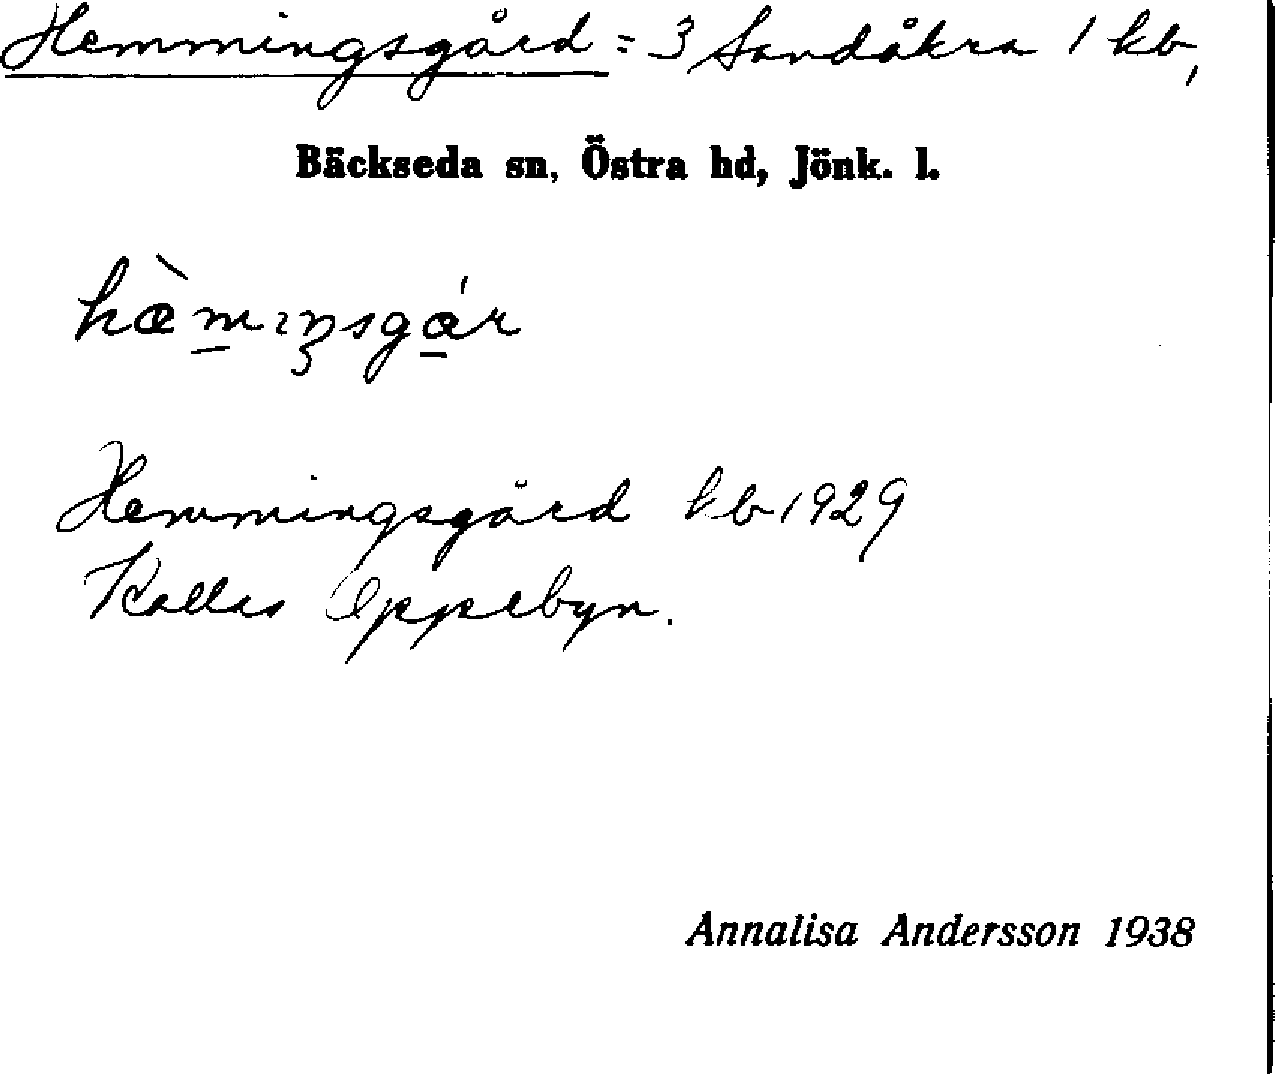 Hemmingsgård = 3 Sandåkra 1 kb,
Bäckseda sn, Östra hd, Jönk. l.
hæ̀mıŋsgár
Hemmingsgård kb 1929
Kallas Oppebyn.
Annalisa Andersson 1938